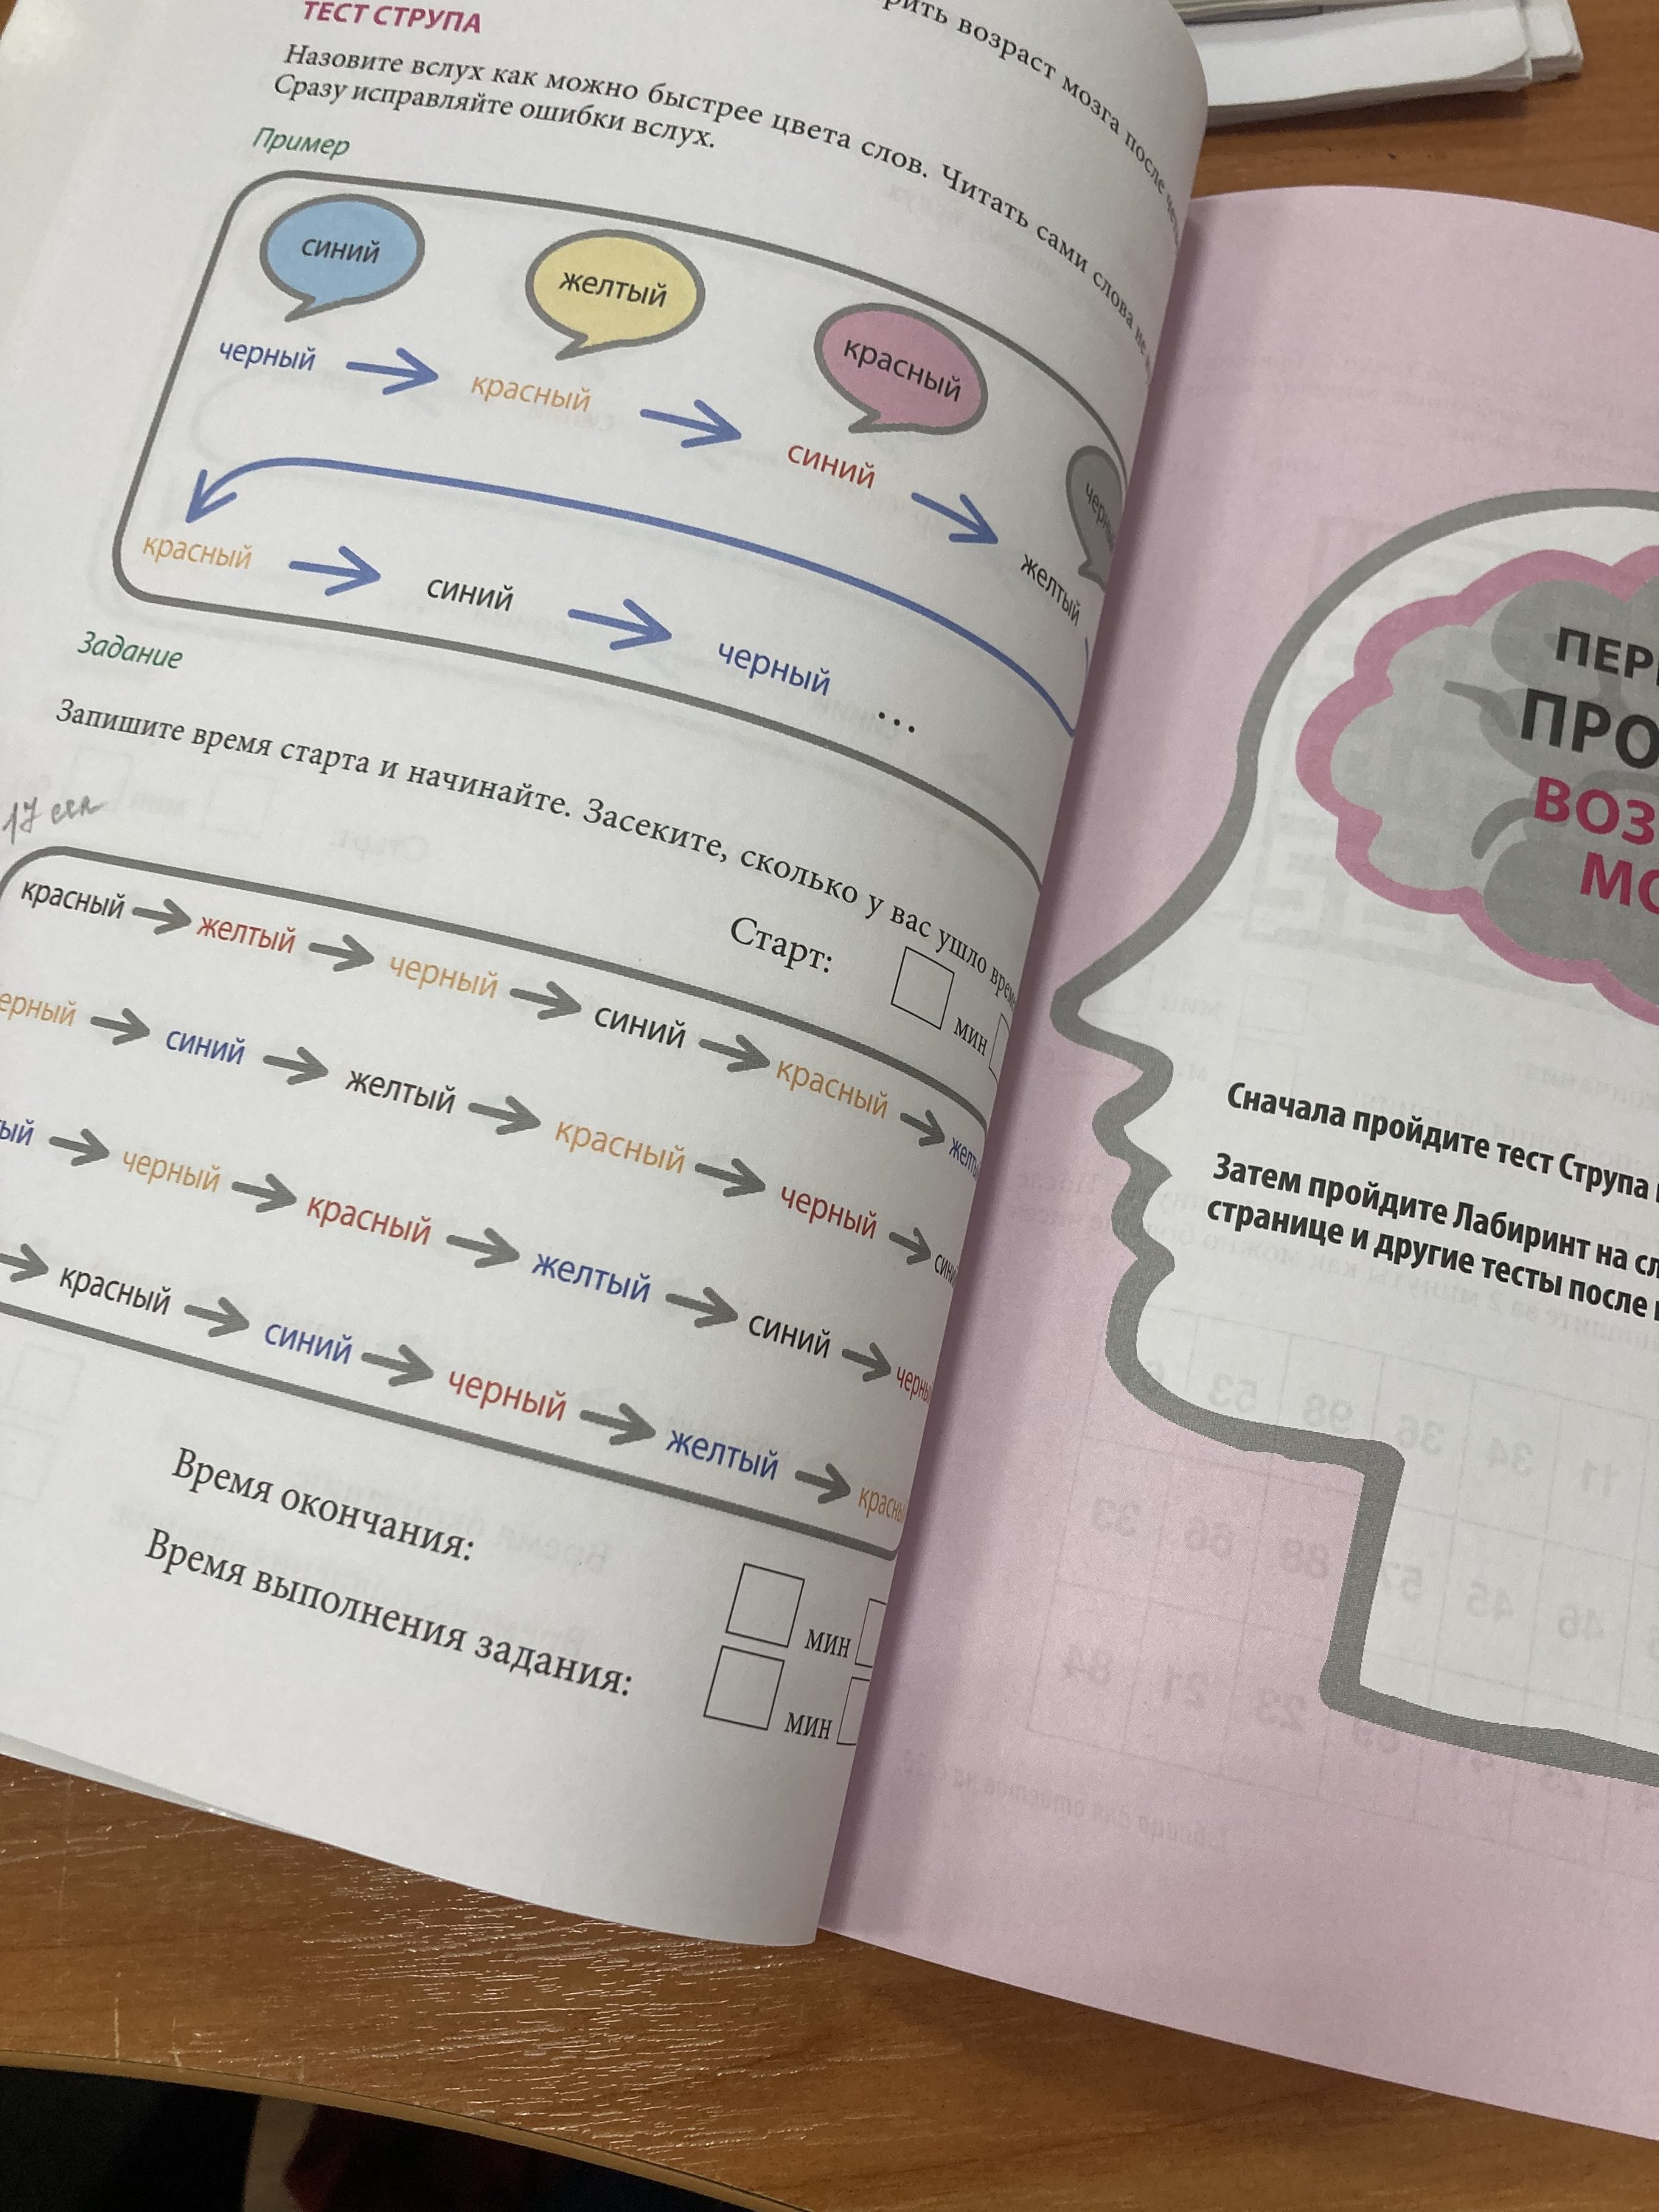 ТЕСТ СТРУПА
возраст мозга после
Назовите вслух как можно быстрее цвета слов. Читать сами слова не
Сразу исправляйте ошибки вслух.
Пример
синий желтый красный
черный красный синий желтый
красный синий черный ...
Задание
Запишите время старта и начинайте. Засеките, сколько у вас ушло
17 сек
Старт: мин
красный желтый черный синий красный
синий желтый красный черный
черный красный желтый синий
красный синий черный желтый
Время окончания: мин
Время выполнения задания: мин
Сначала пройдите тест Струпа
Затем пройдите Лабиринт на
странице и другие тесты после